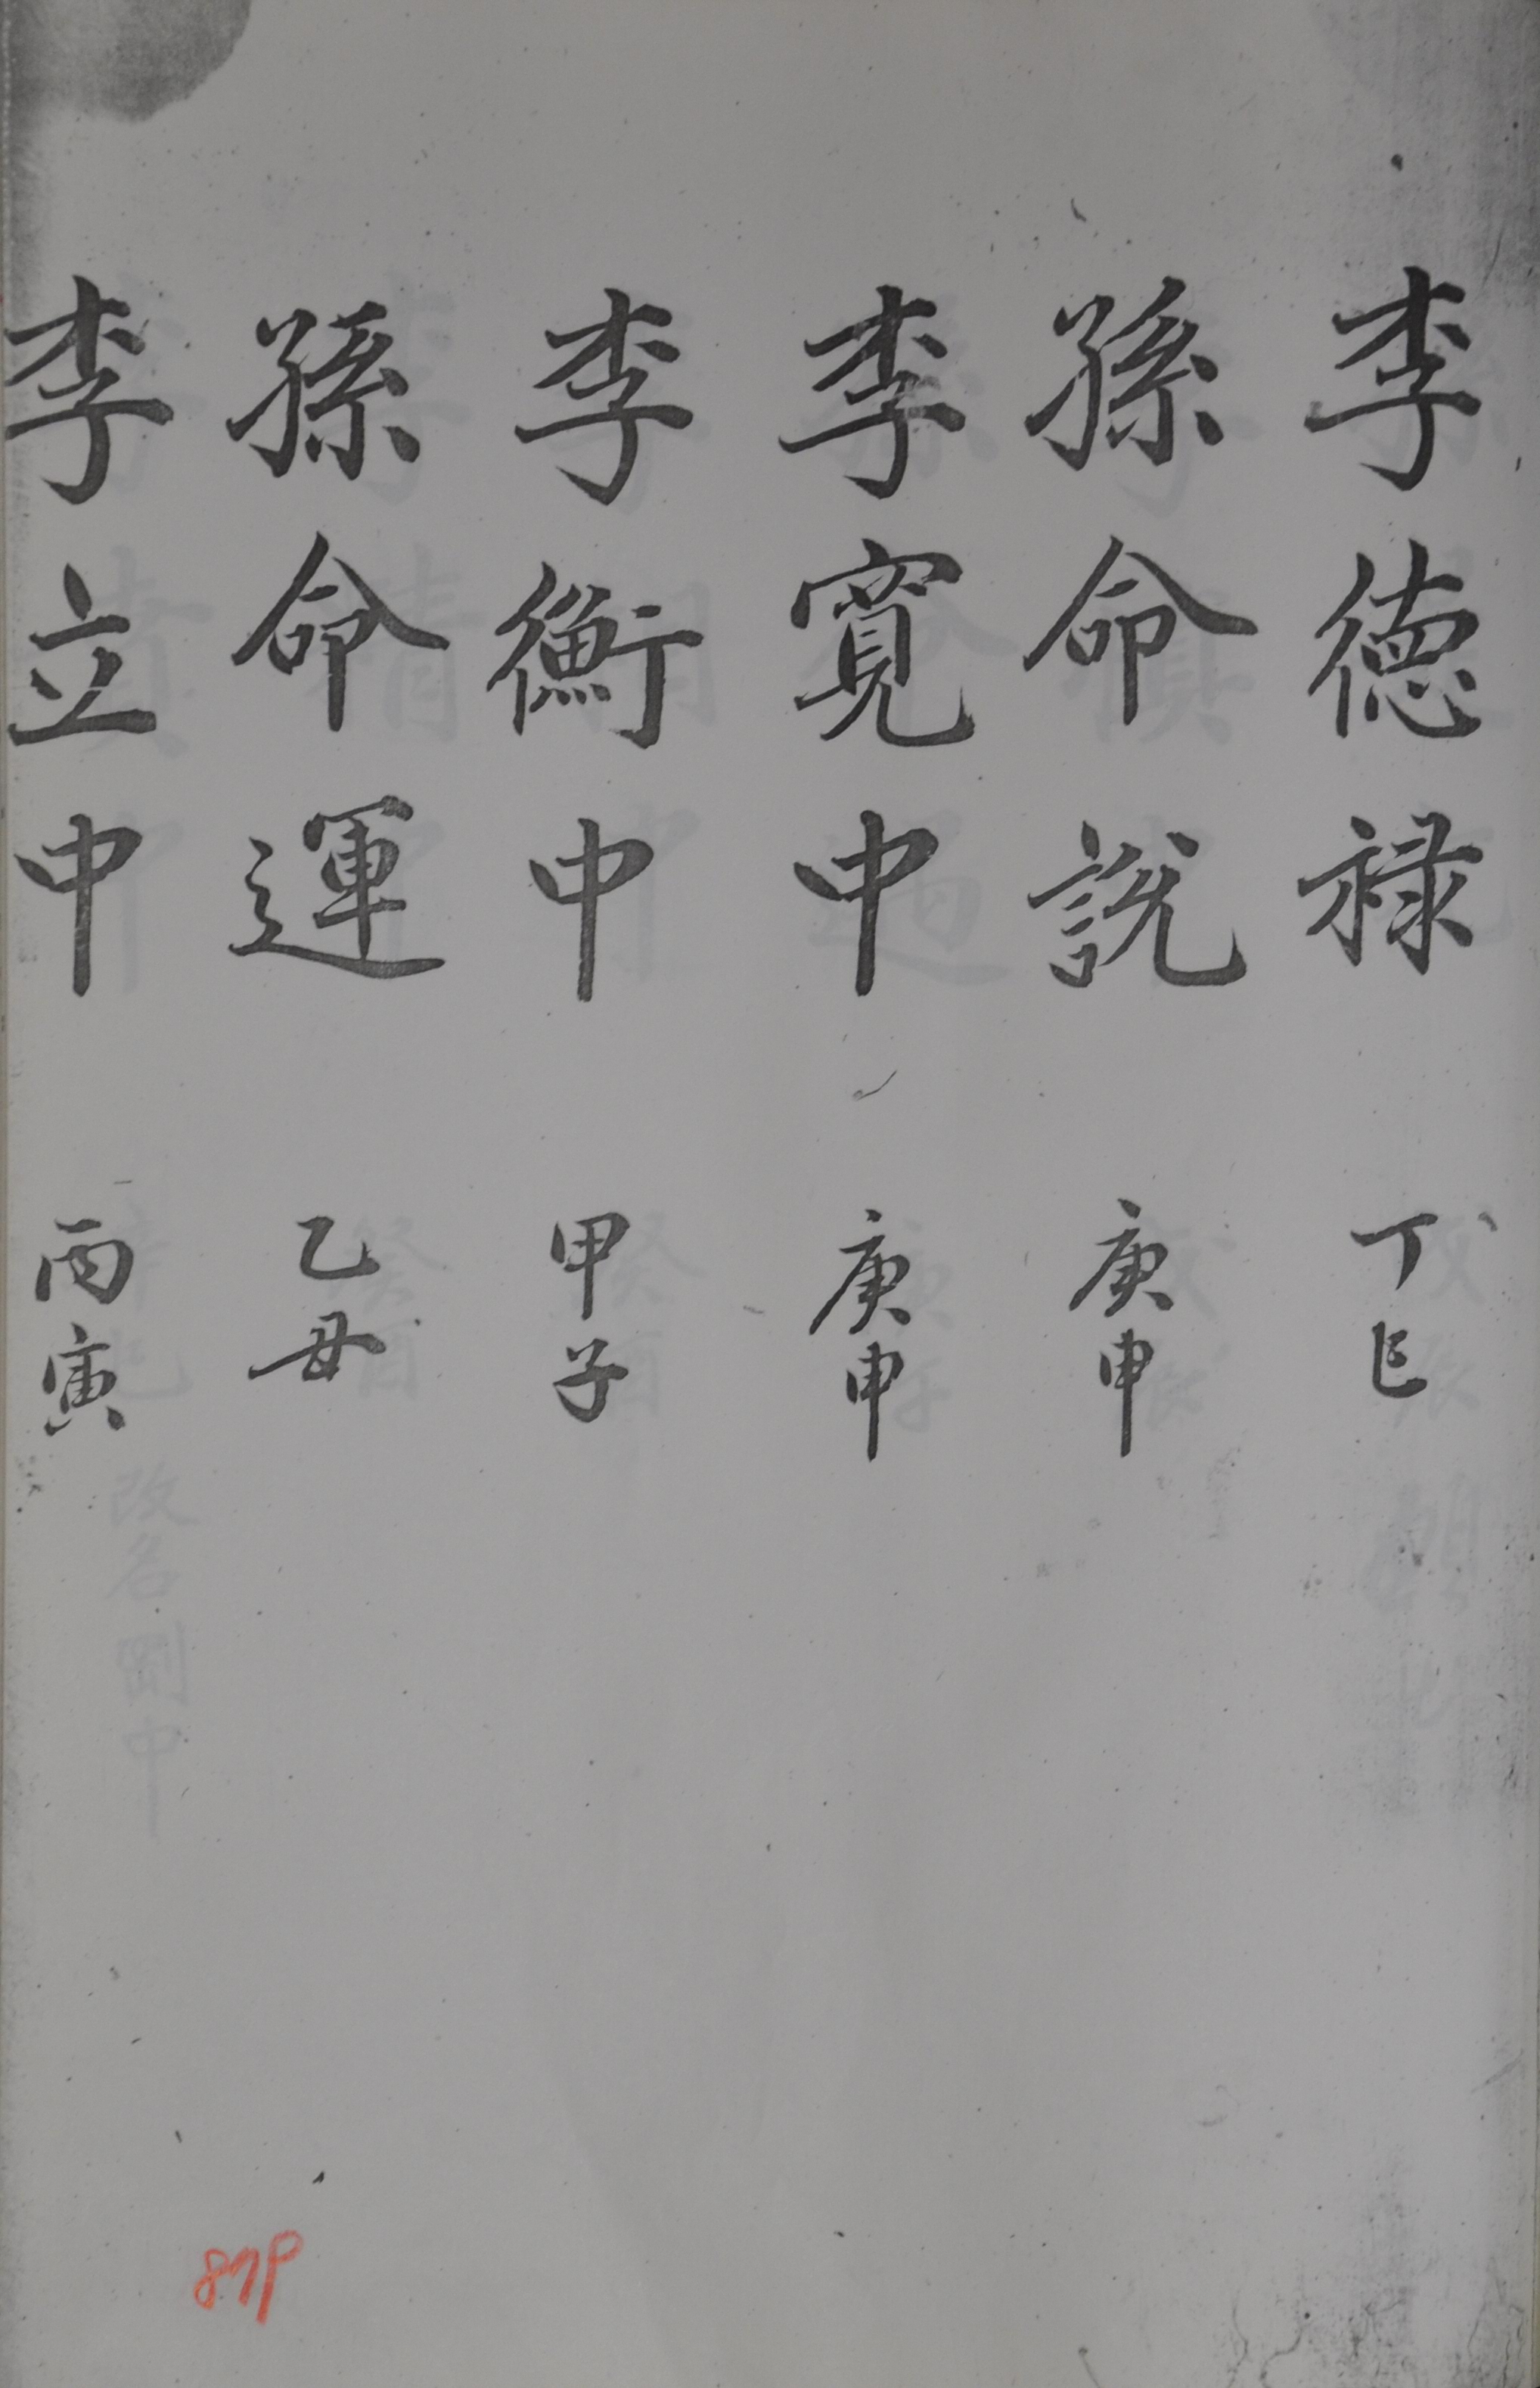 李德祿 丁巳
孫命說 庚申
李寬中 庚申
李衡中 甲子
孫命運 乙丑
李立中 丙寅
879